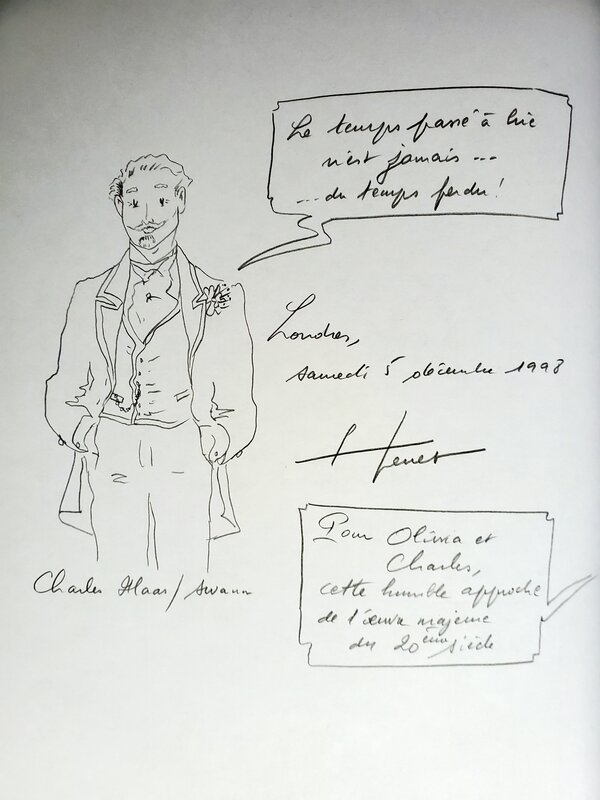 Le temps passé à lire
n'est jamais ...
... du temps perdu !
Londres,
samedi 5 décembre 1998
Heuet
Charles Haas / Swann
Pour Olivia et
Charles,
cette humble approche
de l'œuvre majeure
du 20ème siècle